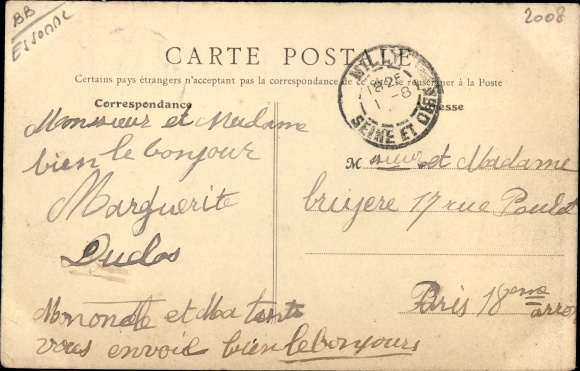 BB
ESSONNE
2008
CARTE POSTALE
Certains pays étrangers n'acceptant pas la correspondance de ce côté se renseigner à la Poste
Correspondance
Adresse
MILLY
18 25
1 -8
SEINE ET OISE
Monsieur et Madame
bien le bonjour
Marguerite
Duclos
Mononcle et Ma tante
vous envoie bien le bonjours
M sieur et Madame
bruyere 17 rue Poulet
Paris 18eme
arro